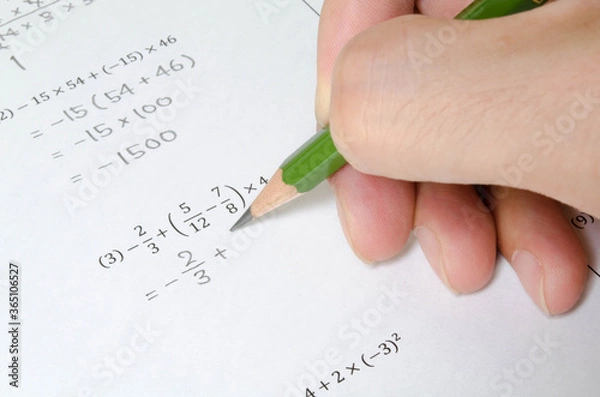 2) − 15 × 54 + (−15) × 46
= −15 (54 + 46)
= −15 × 100
= −1500
(3) − 2/3 + (5/12 − 7/8) × 4
= − 2/3 +
4 + 2 × (−3)²
(9)
Adobe Stock | #365106527